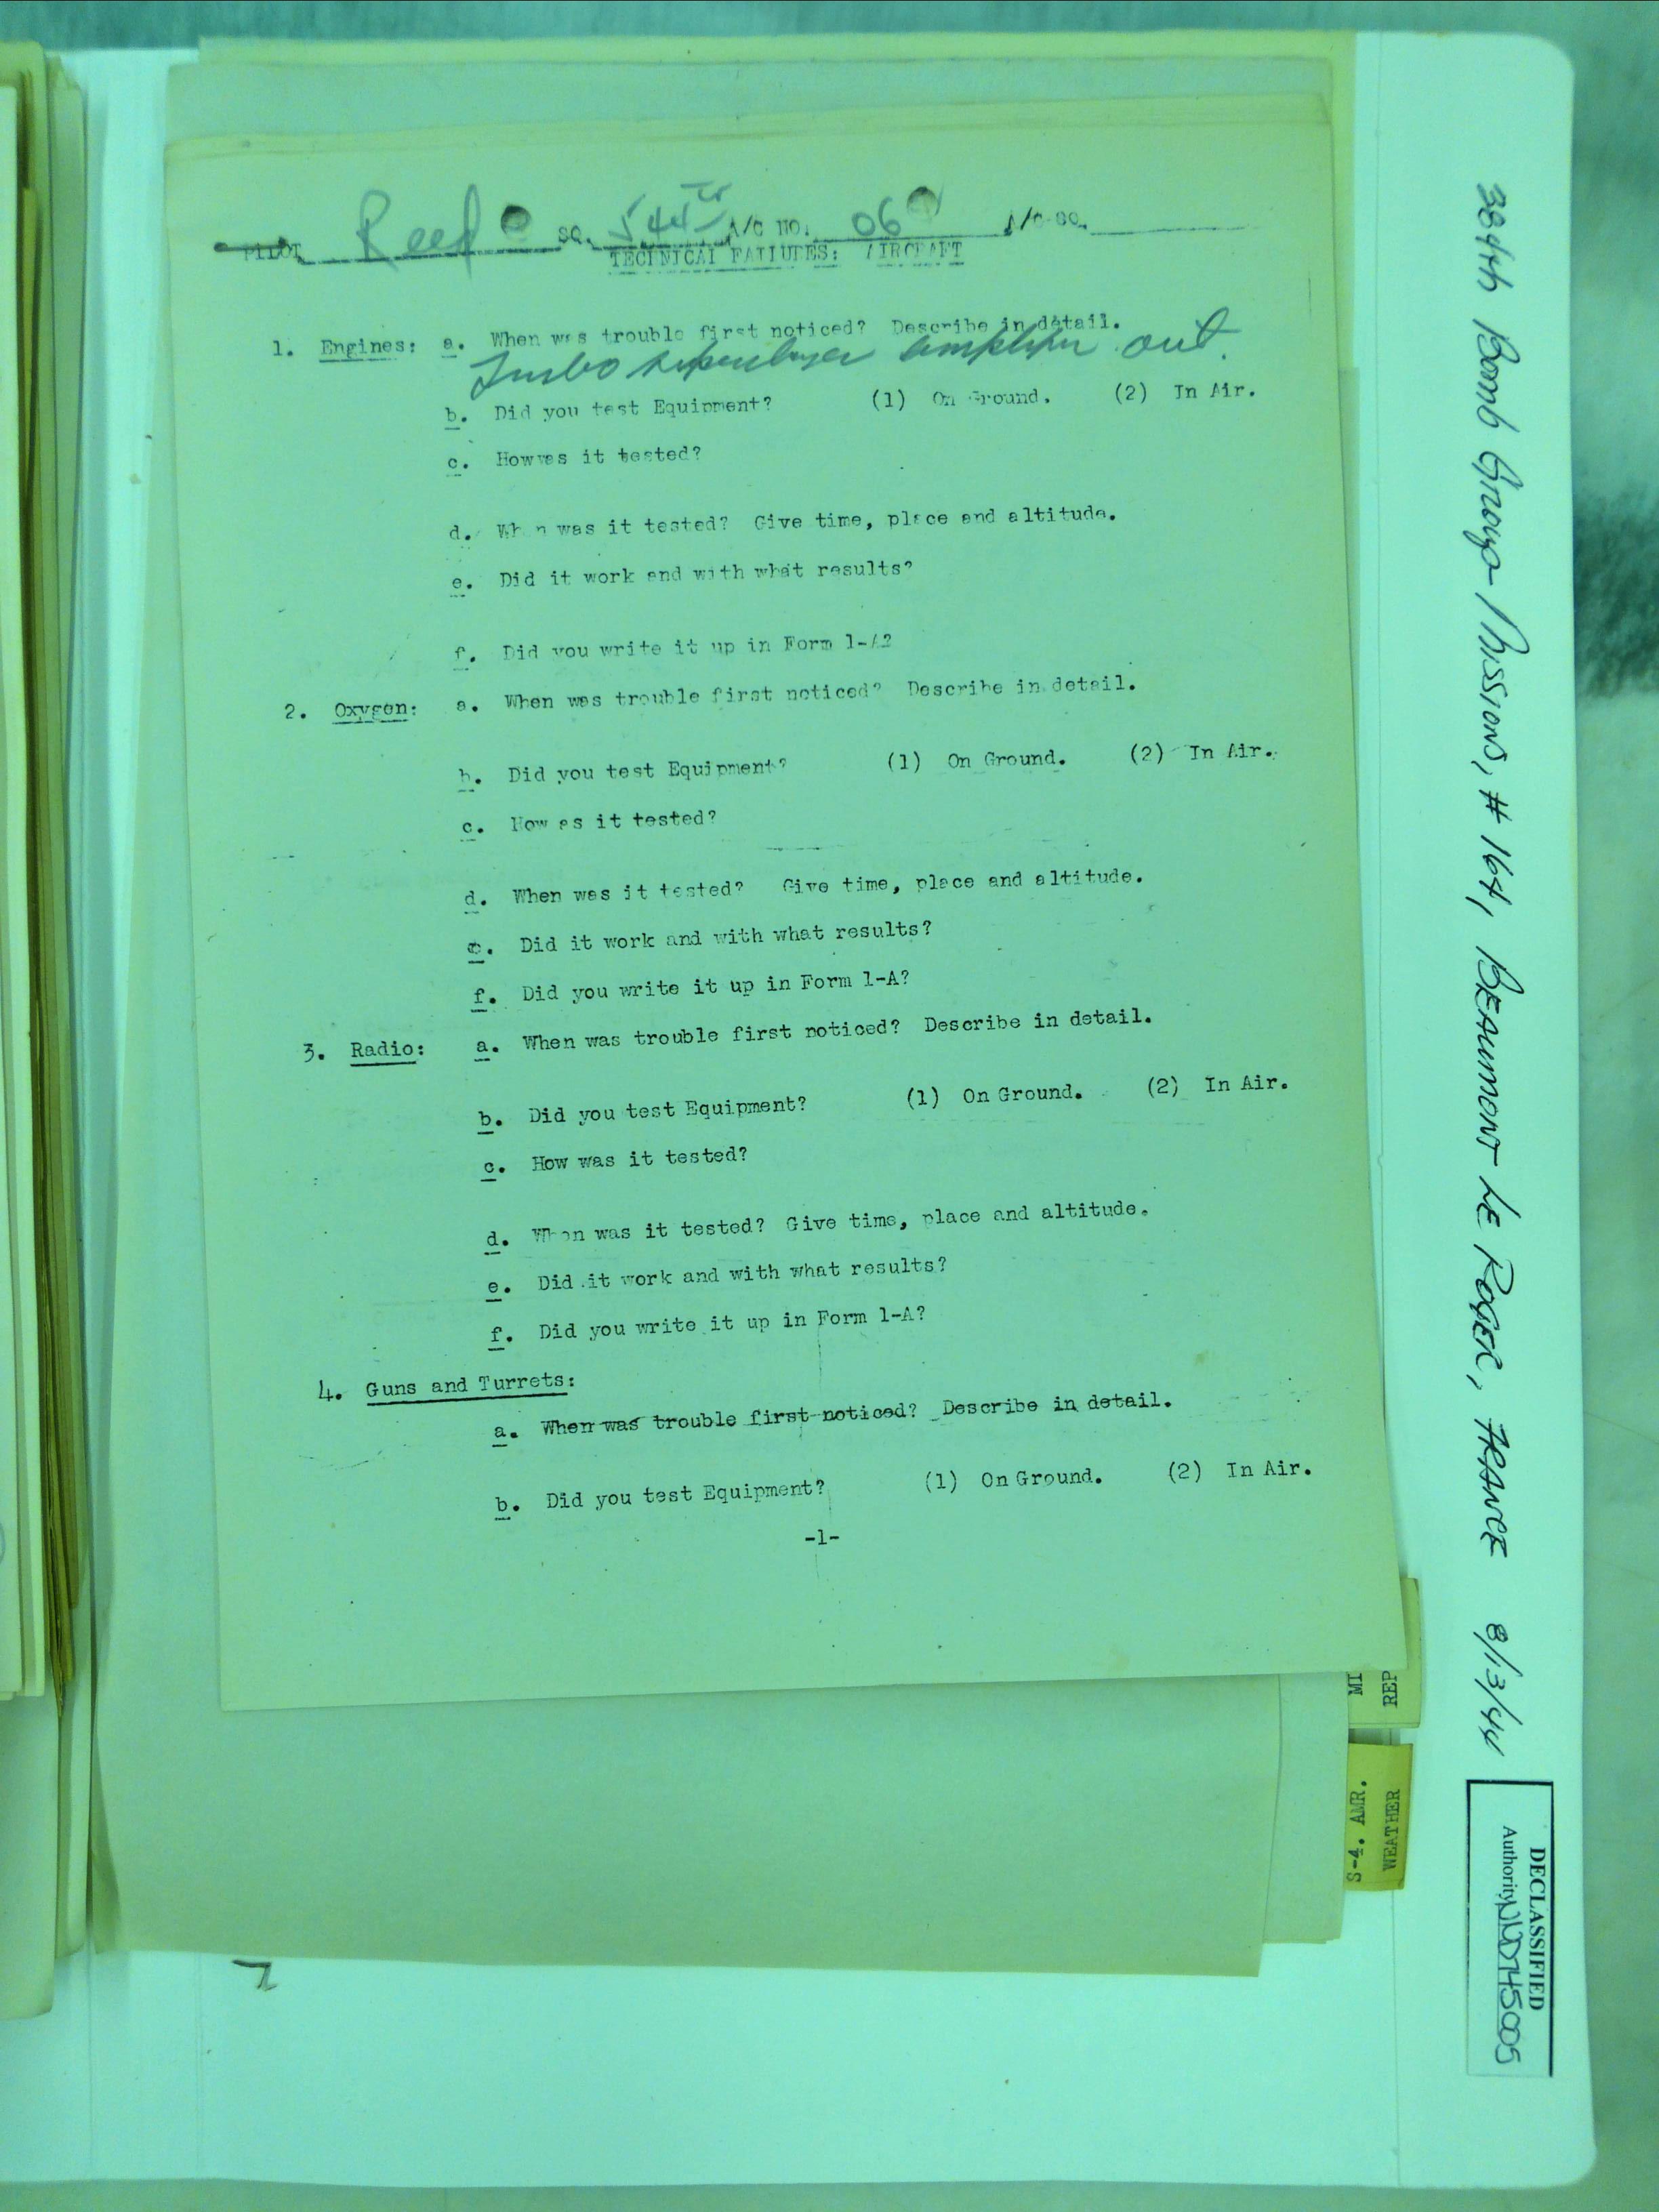 PILOT Reed SQ. 544 A/C NO. 06 A/C SQ.
TECHNICAL FAILURES: AIRCRAFT
1. Engines: a. When was trouble first noticed? Describe in detail.
Turbo supercharger amplifier out.
b. Did you test Equipment? (1) On Ground. (2) In Air.
c. How was it tested?
d. When was it tested? Give time, place and altitude.
e. Did it work and with what results?
f. Did you write it up in Form 1-A?
2. Oxygen: a. When was trouble first noticed? Describe in detail.
b. Did you test Equipment? (1) On Ground. (2) In Air.
c. How as it tested?
d. When was it tested? Give time, place and altitude.
e. Did it work and with what results?
f. Did you write it up in Form 1-A?
3. Radio: a. When was trouble first noticed? Describe in detail.
b. Did you test Equipment? (1) On Ground. (2) In Air.
c. How was it tested?
d. When was it tested? Give time, place and altitude.
e. Did it work and with what results?
f. Did you write it up in Form 1-A?
4. Guns and Turrets:
a. When was trouble first noticed? Describe in detail.
b. Did you test Equipment? (1) On Ground. (2) In Air.
-1-
MI
REP
S-4. AMR.
WEATHER
384th Bomb Group Missions, # 164, BEAUMONT LE ROGER, FRANCE 8/13/44
DECLASSIFIED
Authority NND745005